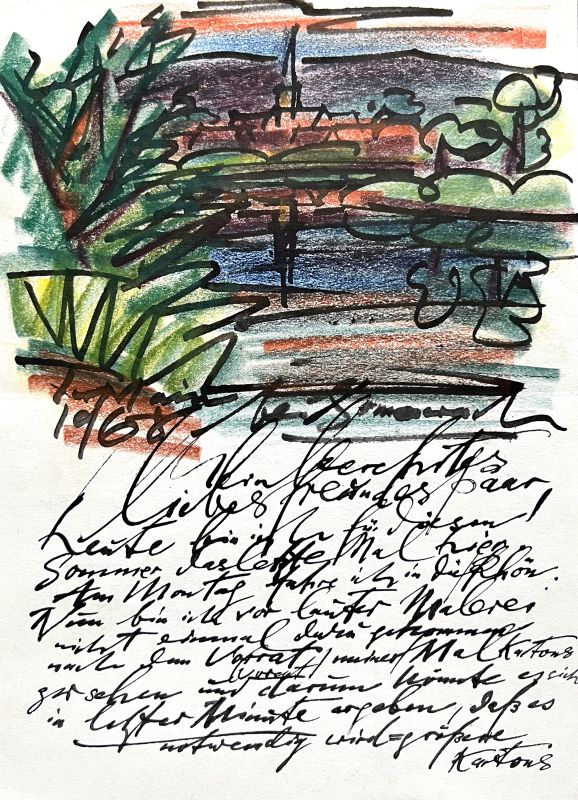 1968
Mein verehrtes
liebes Freundespaar,
heute bin ich für diesen
Sommer das letzte Mal hier.
Am Montag fahre ich in die Rhön.
Nun bin ich vor lauter Malerei
nicht einmal dazu gekommen
nach dem Vorrat meiner Malkartons
Vorrat
zu sehen und darum könnte es sich
in letzter Minute ergeben, daß es
notwendig wird größere
Kartons